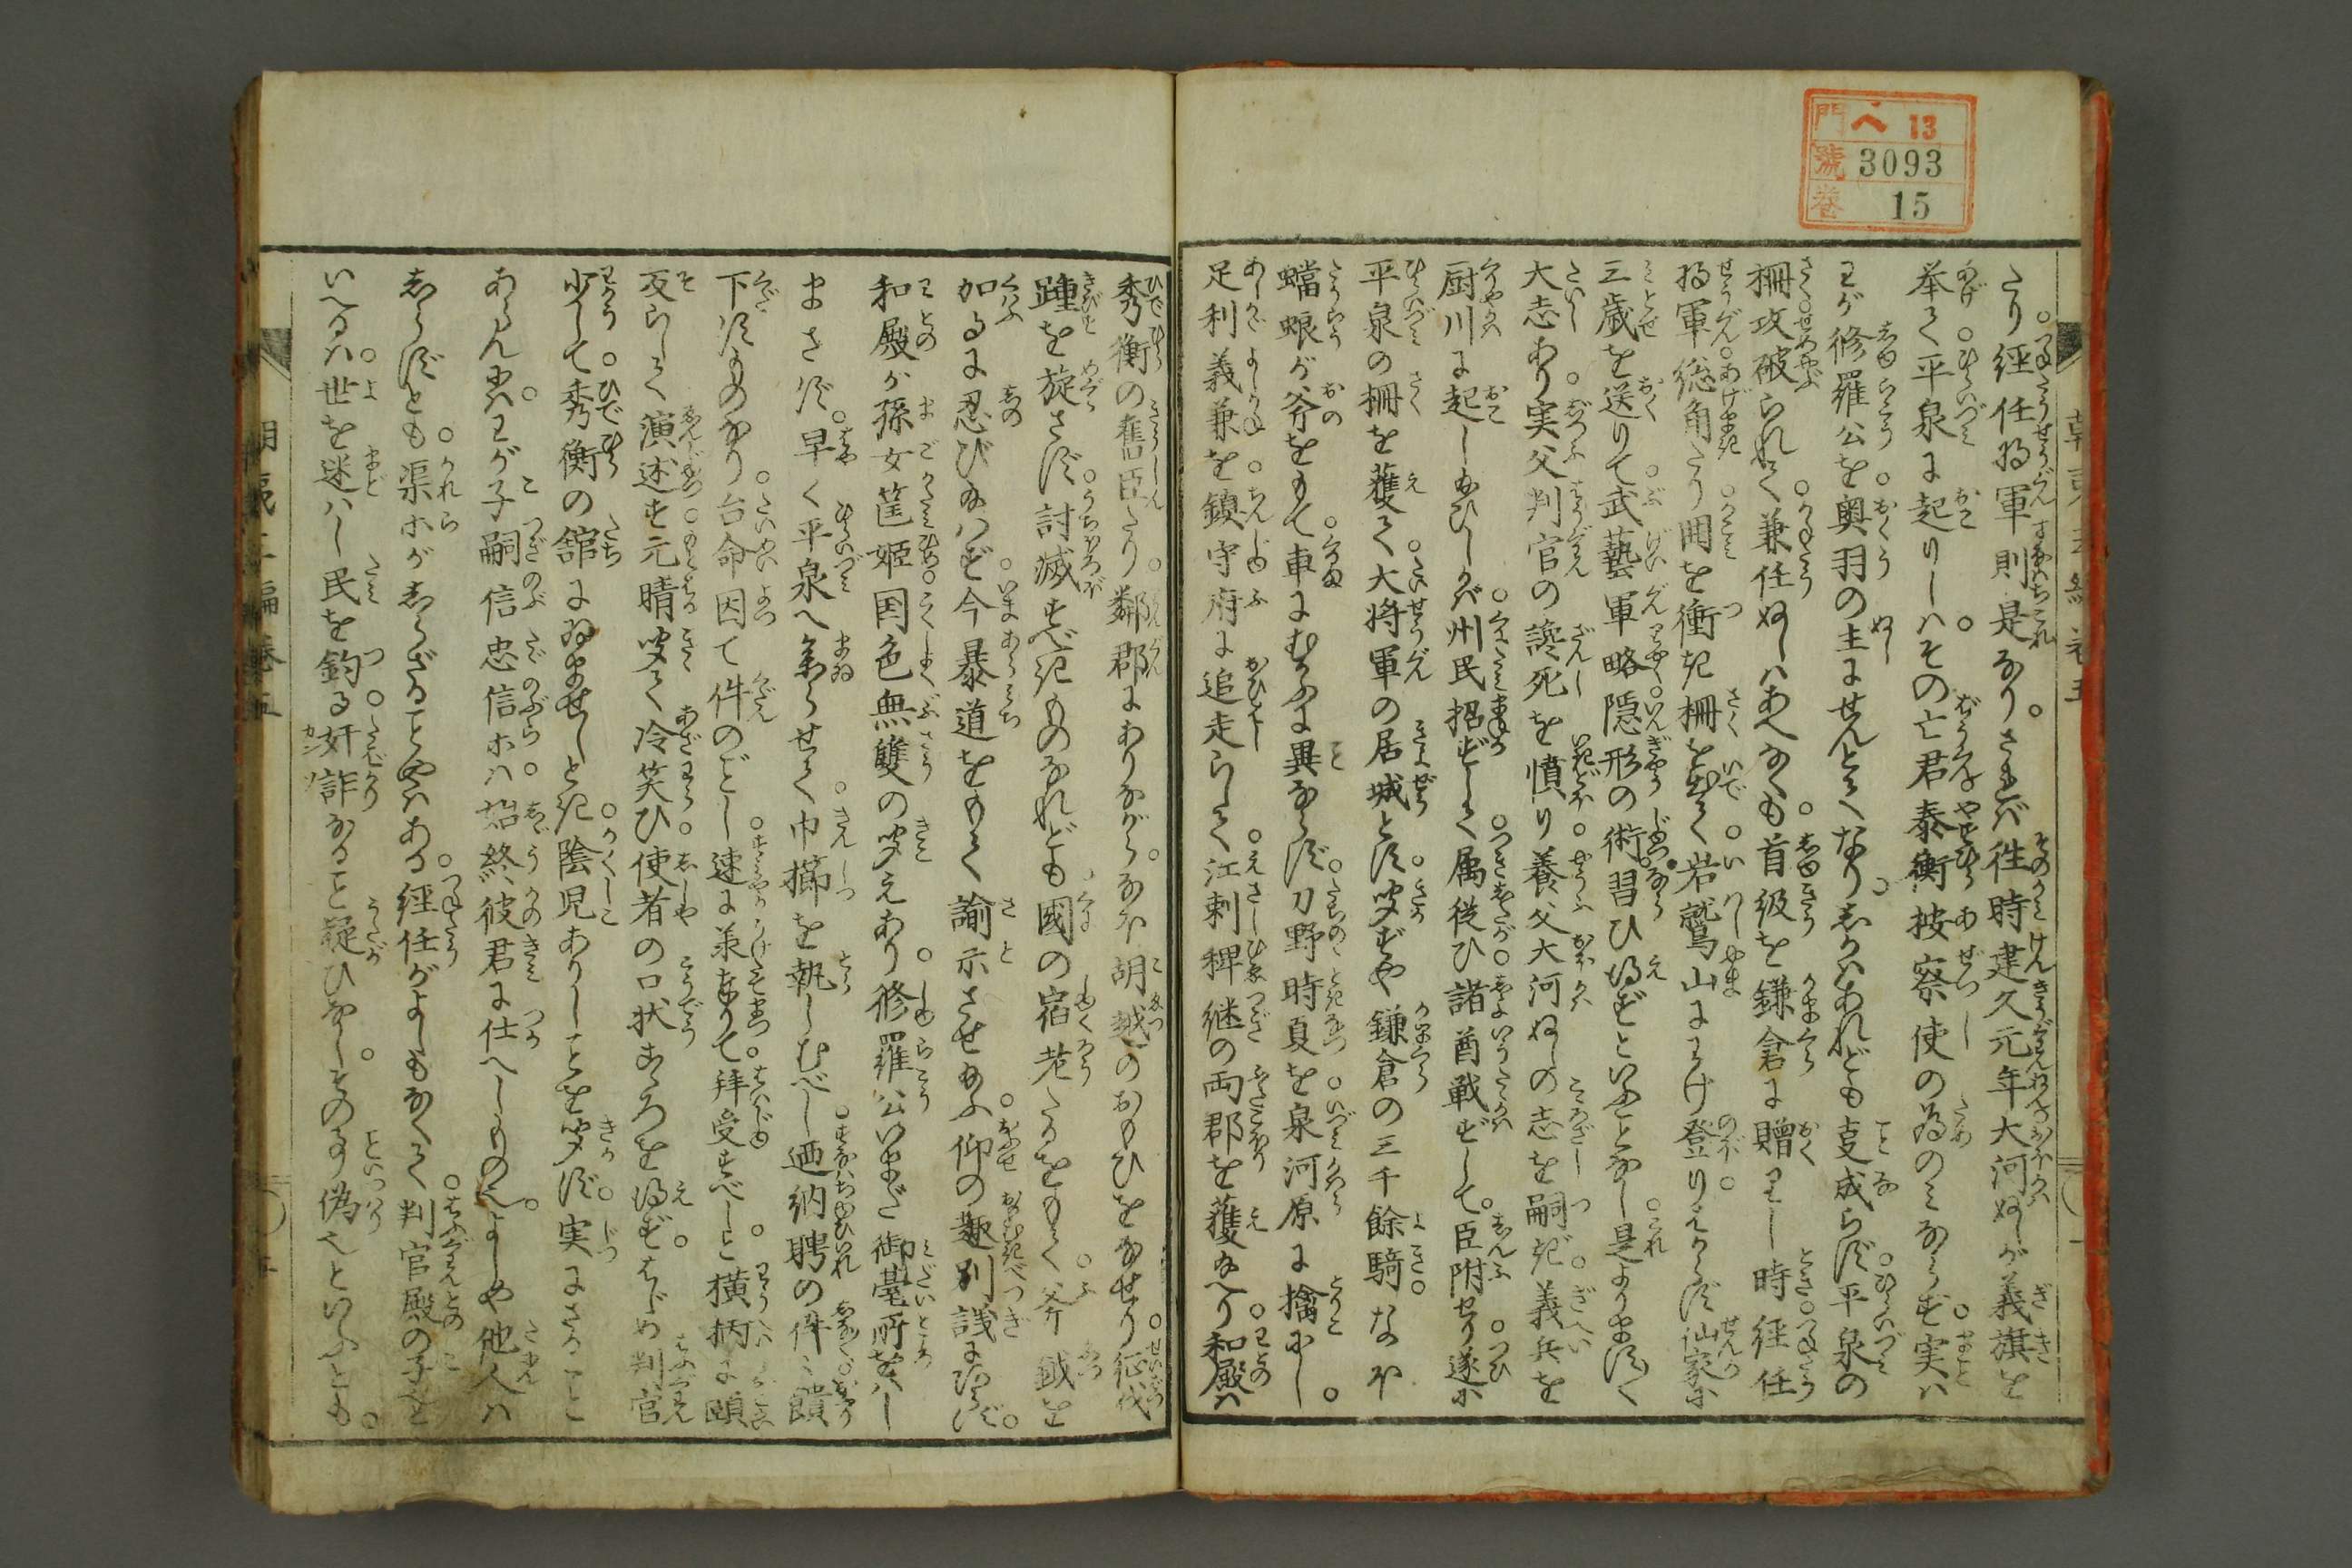 門 へ 13
號 3093
巻 15
たり。経任将軍則是なり。されば往時建久元年大河ぬしが義旗を
挙て平泉に起りしはその亡君泰衡按察使の為のみならず。実は
わが修羅公を奥羽の主にせんとてなり。しかはあれども支成らず。平泉の
柵攻破られて兼任ぬしはあへなくも首級を鎌倉に贈りし時経任
将軍総角たり囲を衝き柵を出て岩鷲山にわけ登り。えならず仙家に
三歳を送りて武藝軍略隠形の術習ひ得ずといふことなし是よりますく
大志あり。実父判官の讒死を憤り養父大河ぬしの志を嗣ぎ。義兵を
厨川に起し給ひしかば州民招ずして属従ひ諸酋戦ずして。臣附せり。遂に
平泉の柵を獲て。大将軍の居城とす。聞ずや鎌倉の三千餘騎なほ
蟷螂が斧をもて車にむかふに異ならず。刀野時夏を泉河原に擒にし。
足利義兼を鎮守府に追走らして江刺稗継の両郡を獲給へり。和殿は
秀衡の舊臣たり。鄰郡にありながら。なほ胡越のおもひをなせり。征伐
踵を旋さず。討滅すべきものなれども國の宿老たるをもて。斧鉞を
加るに忍び給はず。今暴道をもて諭示させ給ふ。仰の趣別議にあらず。
和殿が孫女筐姫国色無雙の聞えあり。修羅公いまだ御臺所をは
まさず。早く平泉へ参らせて巾櫛を執しむべし。迺納聘の件々饋
下すものなり。台命因て件のごし速に承まりて。拝受すべしと。横柄に頤
反らして演述す。元晴聞て冷笑ひ。使者の口状こゝろを得ず。はじめ判官
少して秀衡の舘にゐませしとき。陰児ありしことを聞ず。実にさること
あらんには。わが子嗣信忠信ホは始終彼君に仕へしものなり。よしや他人は
しらずとも。渠ホがしらざることやはある。経任がよしもなくて。判官殿の子と
いへるは。世を迷はし民を釣る。奸詐なること疑ひなし。その事偽也といふとも。